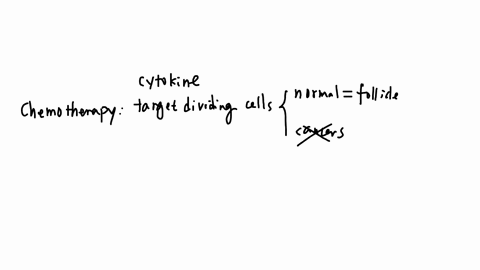 cytokine
Chemotherapy: target dividing cells { normal = follicle
cancers